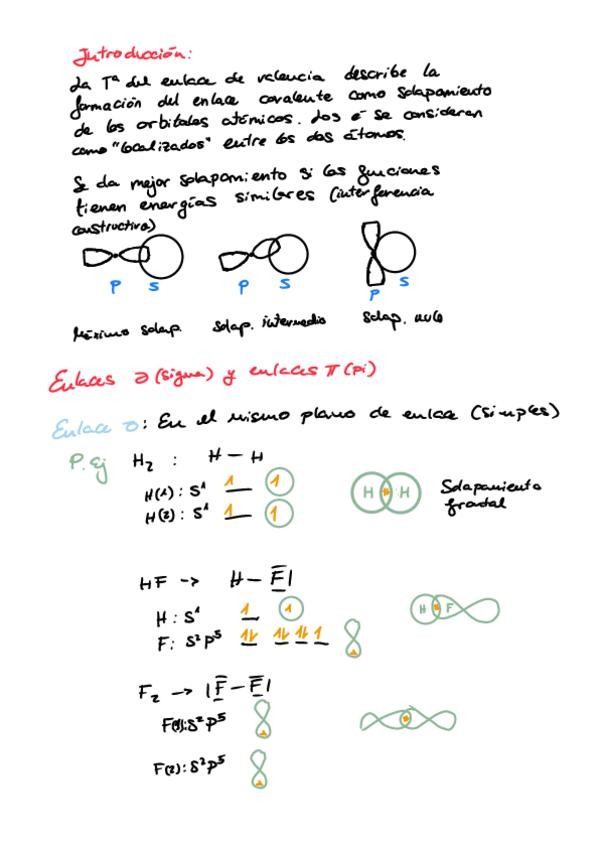 Introducción:
La Tª del enlace de valencia describe la
formación del enlace covalente como solapamiento
de los orbitales atómicos. Los e⁻ se consideran
como "localizados" entre los dos átomos.
Se da mejor solapamiento si las funciones
tienen energías similares (interferencia
constructiva)
P S P S P S
Máximo solap. Solap. intermedio Solap. nulo
Enlaces σ (sigma) y enlaces π (pi)
Enlace σ: En el mismo plano de enlace (simples)
P. Ej H₂ : H – H
H(1): S¹ 1 1
H(2): S¹ 1 1
H H Solapamiento
frontal
HF -> H – F̅|
H: S¹ 1 1
F: S² p⁵ 1L 1L 1L 1
H F
F₂ -> |F̅ – F̅|
F(1): S² p⁵
F(2): S² p⁵